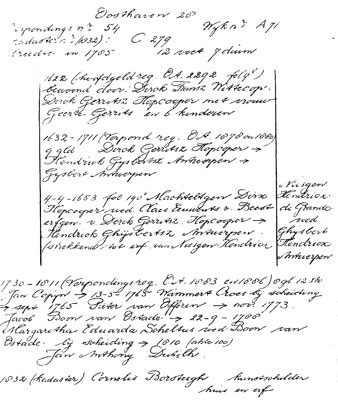 Oosthaven 20
Verpondings nº 54 Wyk nº A 71
Kadaster nº (1832): C 279
breedte in 1785 12 voet 7 duim
1622 (hoofdgeld reg. O.A. 2292 fol 9ᵛ)
bewoond door: Dirck Fransz Wittecop.
Derck Gerritsz Hopcooper met vrouw
Geertr. Gerrits en 6 kinderen
1632-1711 (Verpond reg. O.A. 1078 en 1080)
9 gld Derck Gerritsz Hopcooper →
Hendrick Gysbertsz Antwerpen →
Gysbert Antwerpen
4-4-1653 fol 190ᵛ Machteltgen Dircx
Hopcooper wed Claes Leeuwertz v. Beest
erfgen. v. Derck Gerritsz. Hopcooper →
Hendrick Ghijsbertsz Antwerpen
(strekkend tot erf. van Niesgen Hendricx
Niesgen
Hendricx
de Grande
wed
Ghysbert
Hendricx
Antwerpen
1730-1811 (Verpondingsreg. O.A. 1083 en 1086) 9 gl 12 st
Jan Copijn → 13-5-1765 Wammert Croes bij scheiding
→ sept 1765 Pieter van Efferen → nov. 1773
Jacob Boon van Ostade → 22-9-1788
Margaretha Eduarda Scholtus wed Boon van
Ostade bij scheiding → 1810
Jan Anthony Dutilh
1832 (Kadaster) Cornelis Borsteegh kunstschilder
huis en erf